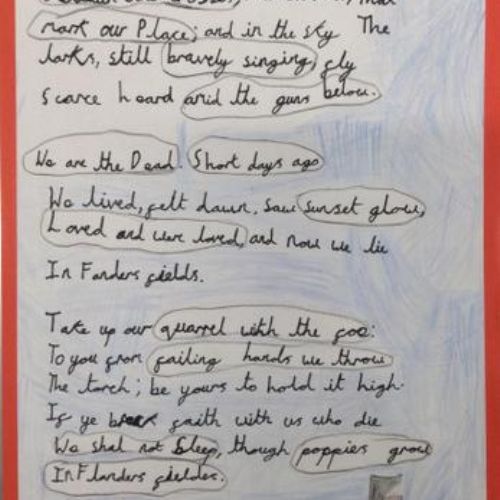 mark our Place; and in the sky The
larks, still bravely singing, fly
Scarce heard amid the guns below.
We are the Dead. Short days ago
We lived, felt dawn, saw sunset glow,
Loved and were loved, and now we lie
In Fanders fields.
Take up our quarrel with the foe:
To you from failing hands we throw
The torch; be yours to hold it high.
If ye break faith with us who die
We shal not Sleep, though poppies grow
In Flanders fieldes.